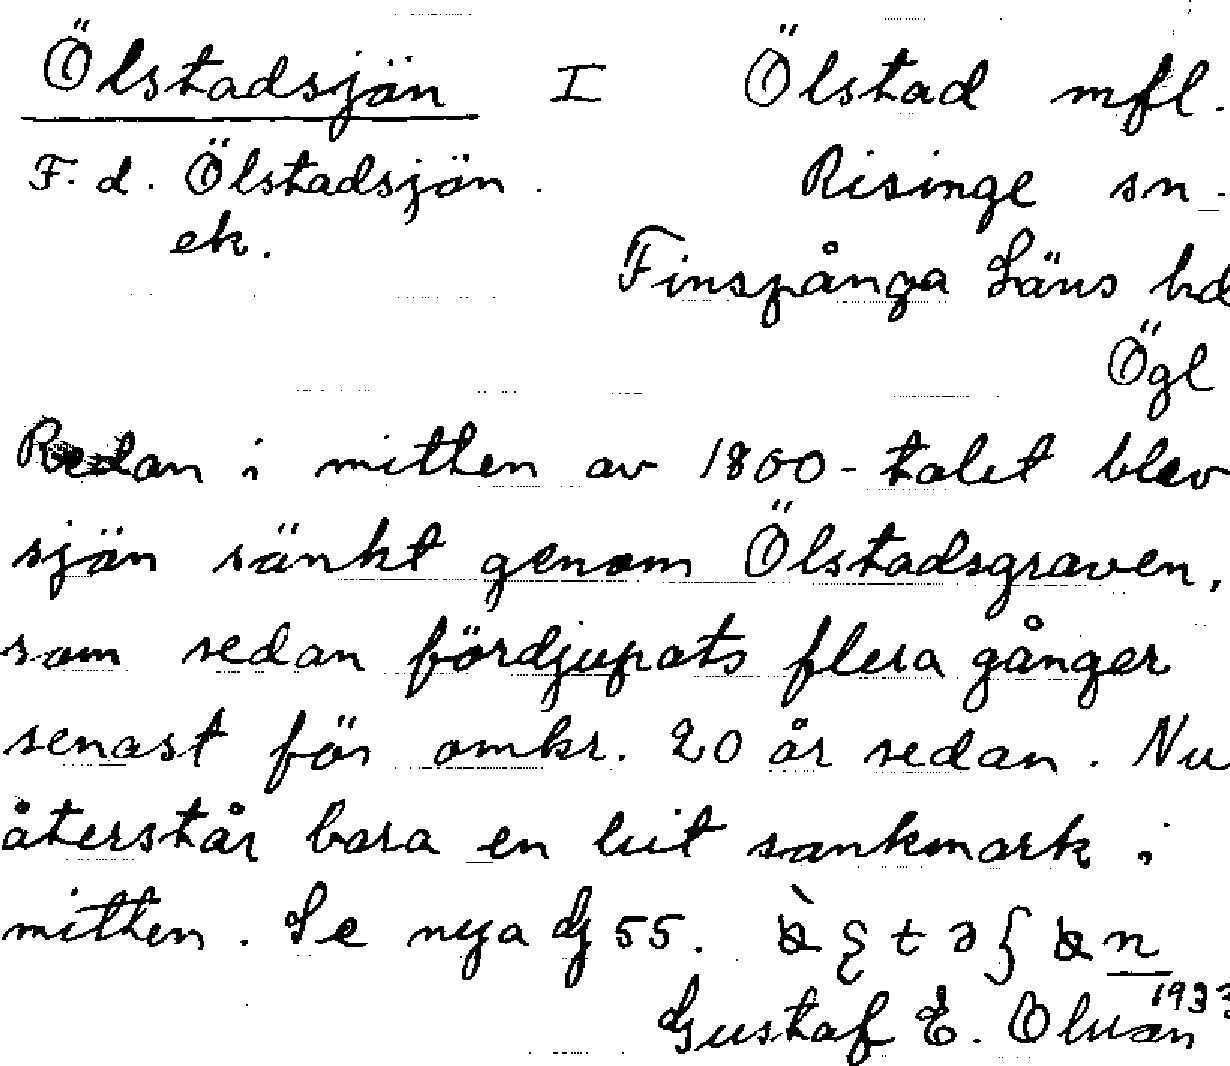 Ölstadsjön I Ölstad mfl.
F. d. Ölstadsjön. Risinge sn.
ek. Finspånga Läns hd
Ögl
Redan i mitten av 1800-talet blev
sjön sänkt genom Ölstadsgraven,
som sedan fördjupats flera gånger
senast för omkr. 20 år sedan. Nu
återstår bara en liit sankmark i
mitten. Se nya G 55.
1933
Gustaf E. Olvan